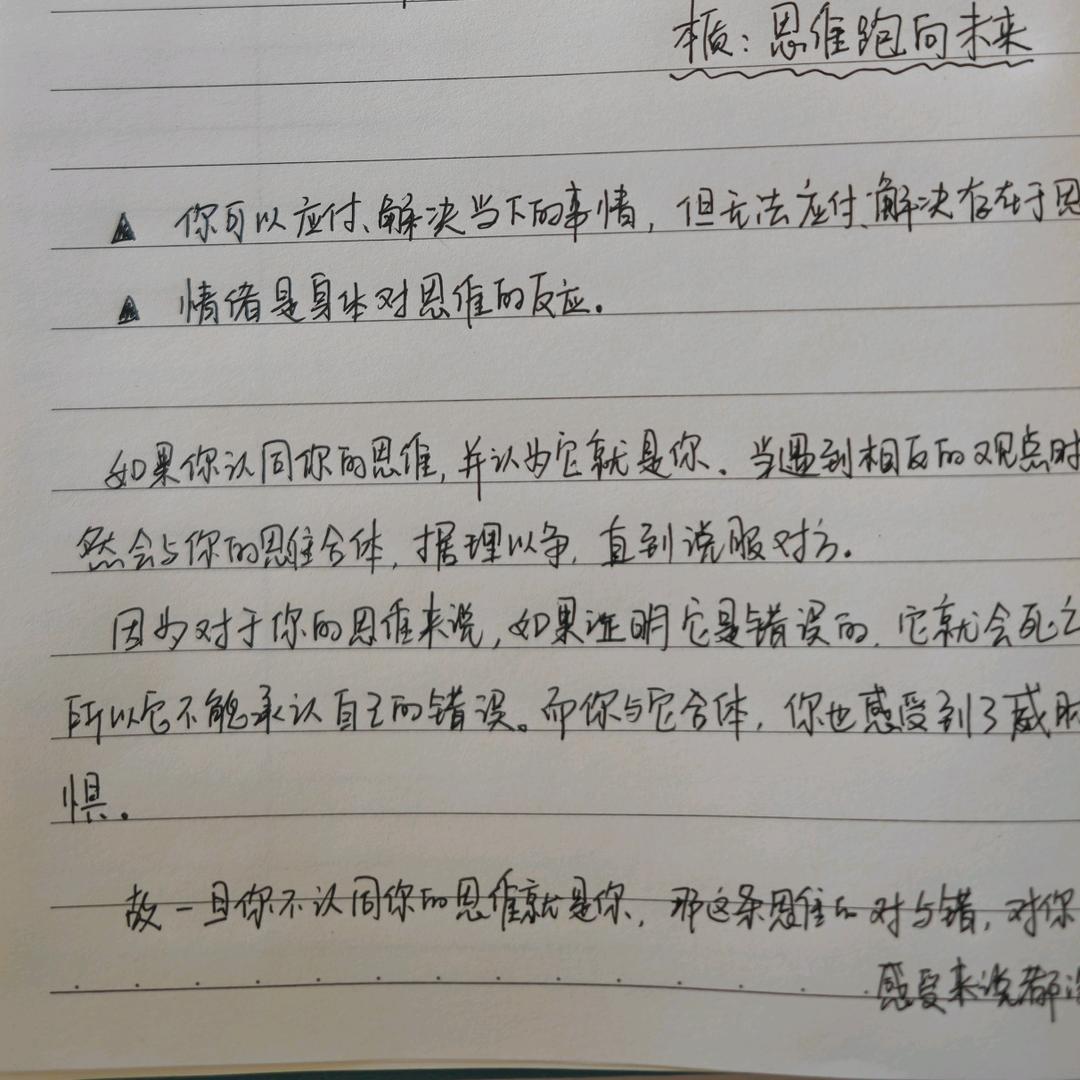 本质：思维跑向未来
▲ 你可以应付、解决当下的事情，但无法应付、解决存在于思
▲ 情绪是身体对思维的反应。
如果你认同你的思维，并认为它就是你。当遇到相反的观点时
然会与你的思维合体，据理以争，直到说服对方。
因为对于你的思维来说，如果证明它是错误的，它就会死亡
所以它不能承认自己的错误。而你与它合体，你也感受到了威胁
惧。
故一旦你不认同你的思维就是你，那这条思维的对与错，对你
感受来说都没